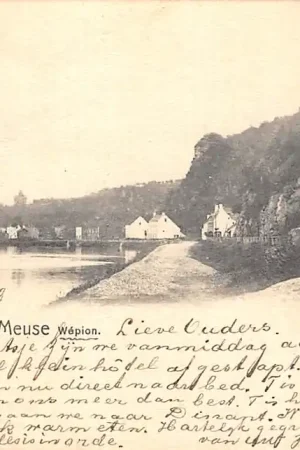 Meuse Wépion. Lieve Ouders.
zijn we vanmiddag
hôtel afgestapt.
nu direct naar bed. 't is
ons meer dan best. 't is h
gaan we naar Dinant. H
k warm eten. Hartelijk gegr
lesisinorde. van uw